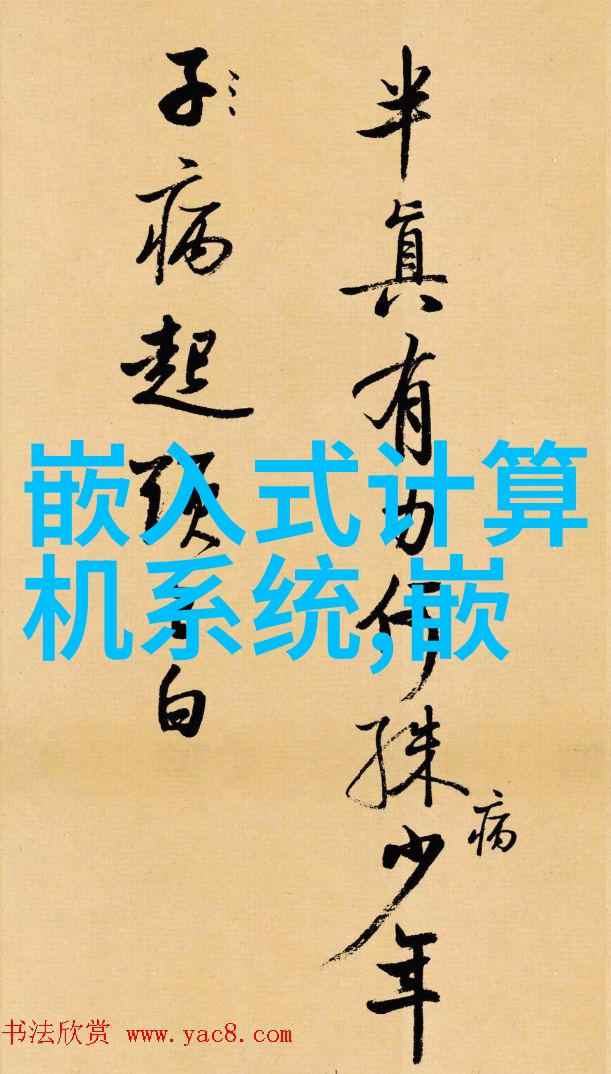 半真有力何殊少年
病
子病起頭白
嵌入式计算
机系统,嵌
书法欣赏 www.yac8.com